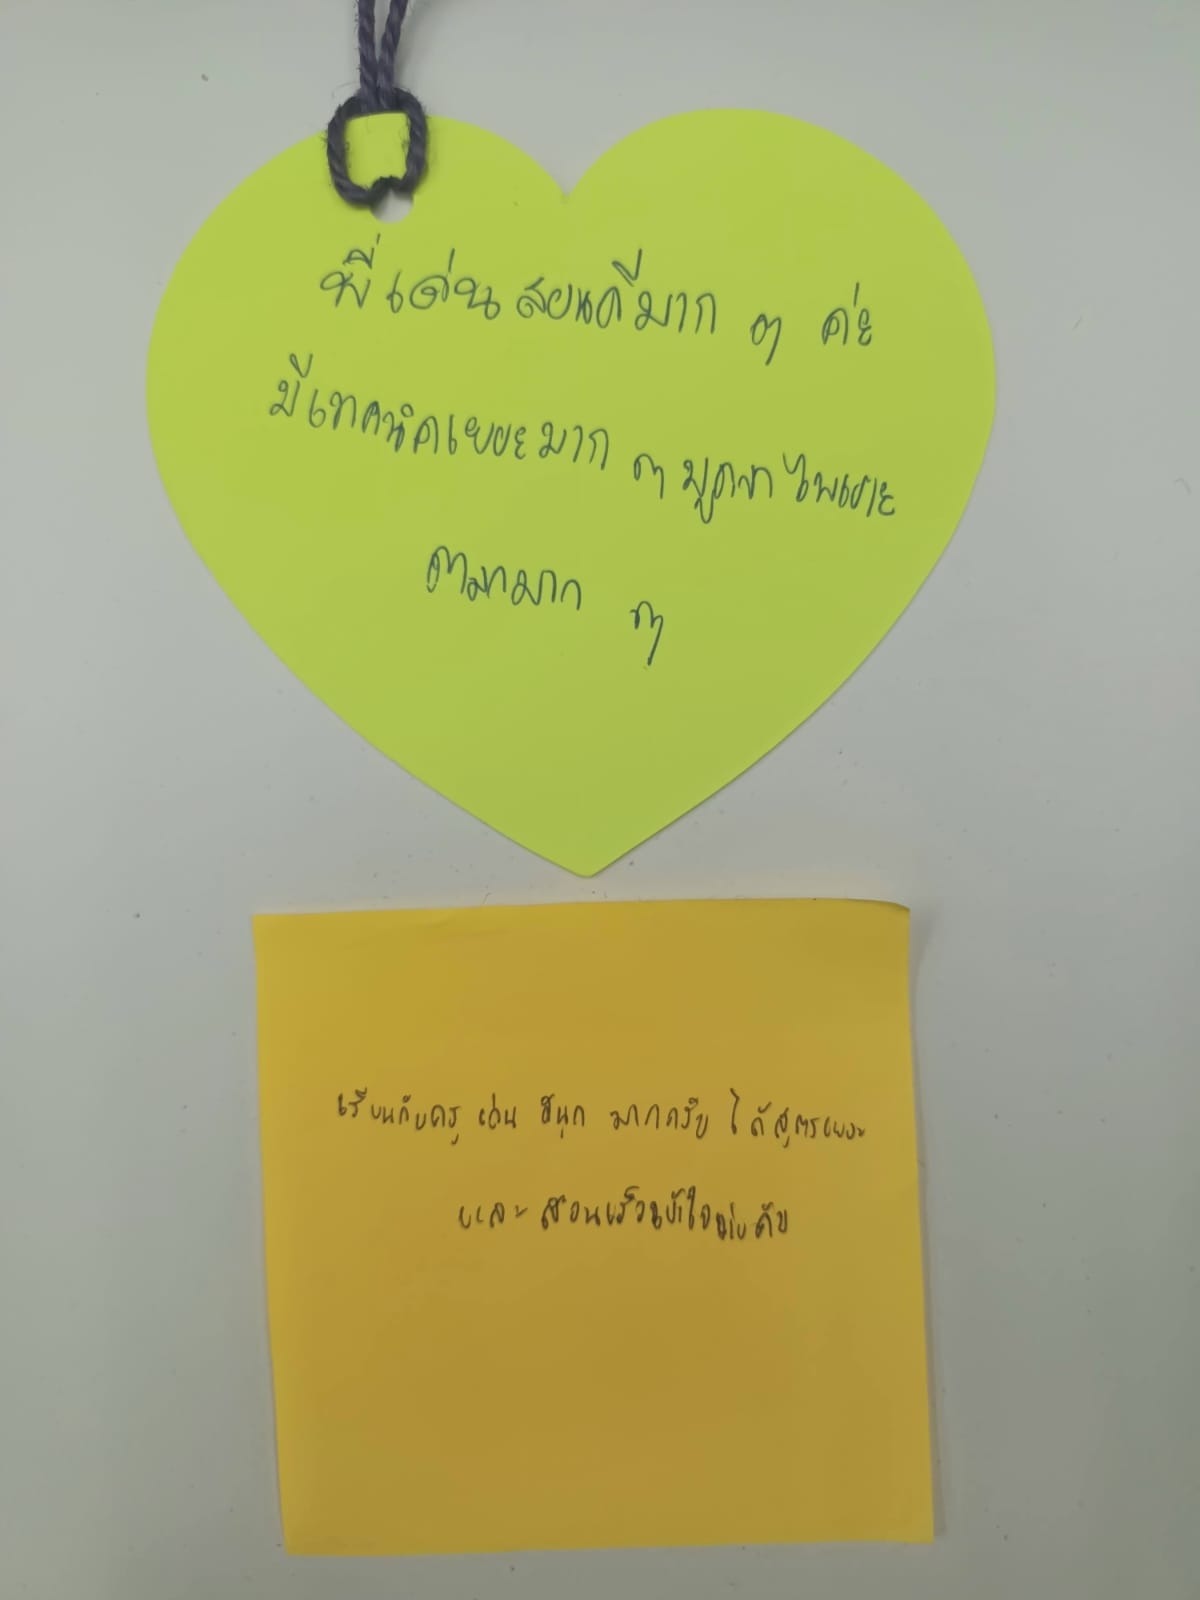 พี่เด่นสอนดีมาก ๆ ค่ะ
มีเทคนิคเยอะมาก ๆ พูดจาไพเราะ
มากมาก ๆ
เรียนกับครู เด่น สนุก มากครับ ได้สูตรเยอะ
และ สอนเร็วเข้าใจง่ายคับ